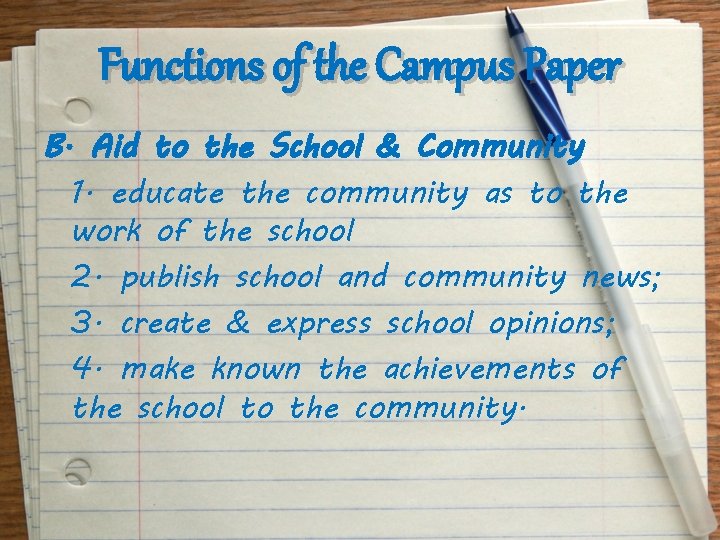 Functions of the Campus Paper
B. Aid to the School & Community
1. educate the community as to the
work of the school
2. publish school and community news;
3. create & express school opinions;
4. make known the achievements of
the school to the community.